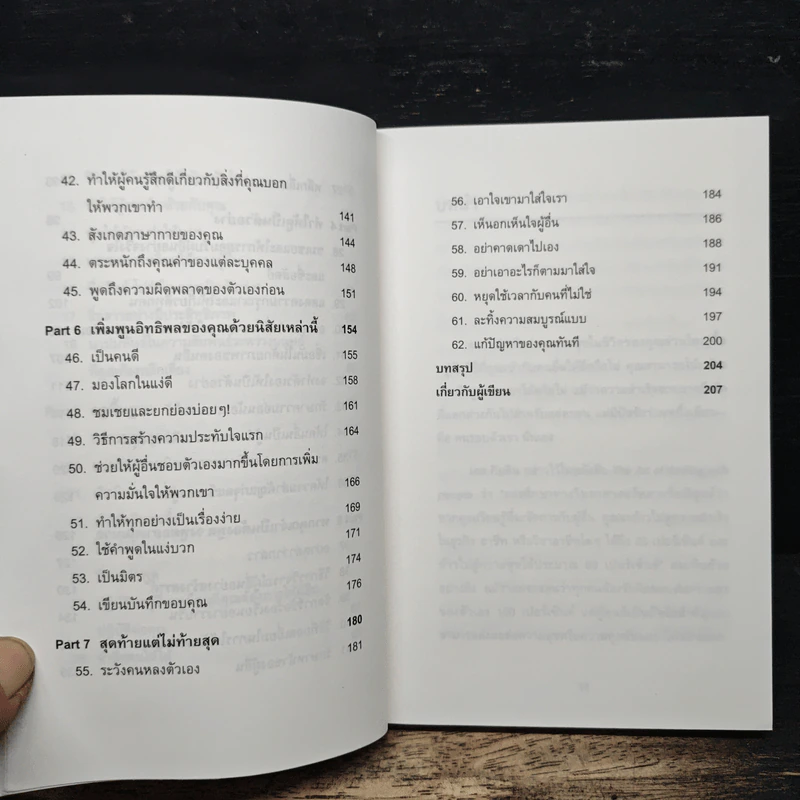 42. ทำให้ผู้คนรู้สึกดีเกี่ยวกับสิ่งที่คุณบอก
ให้พวกเขาทำ 141
43. สังเกตภาษากายของคุณ 144
44. ตระหนักถึงคุณค่าของแต่ละบุคคล 148
45. พูดถึงความผิดพลาดของตัวเองก่อน 151
Part 6 เพิ่มพูนอิทธิพลของคุณด้วยนิสัยเหล่านี้ 154
46. เป็นคนดี 155
47. มองโลกในแง่ดี 158
48. ชมเชยและยกย่องบ่อยๆ! 161
49. วิธีการสร้างความประทับใจแรก 164
50. ช่วยให้ผู้อื่นชอบตัวเองมากขึ้นโดยการเพิ่ม
ความมั่นใจให้พวกเขา 166
51. ทำให้ทุกอย่างเป็นเรื่องง่าย 169
52. ใช้คำพูดในแง่บวก 171
53. เป็นมิตร 174
54. เขียนบันทึกขอบคุณ 176
Part 7 สุดท้ายแต่ไม่ท้ายสุด 180
55. ระวังคนหลงตัวเอง 181
56. เอาใจเขามาใส่ใจเรา 184
57. เห็นอกเห็นใจผู้อื่น 186
58. อย่าคาดเดาไปเอง 188
59. อย่าเอาอะไรก็ตามมาใส่ใจ 191
60. หยุดใช้เวลากับคนที่ไม่ใช่ 194
61. ละทิ้งความสมบูรณ์แบบ 197
62. แก้ปัญหาของคุณทันที 200
บทสรุป 204
เกี่ยวกับผู้เขียน 207